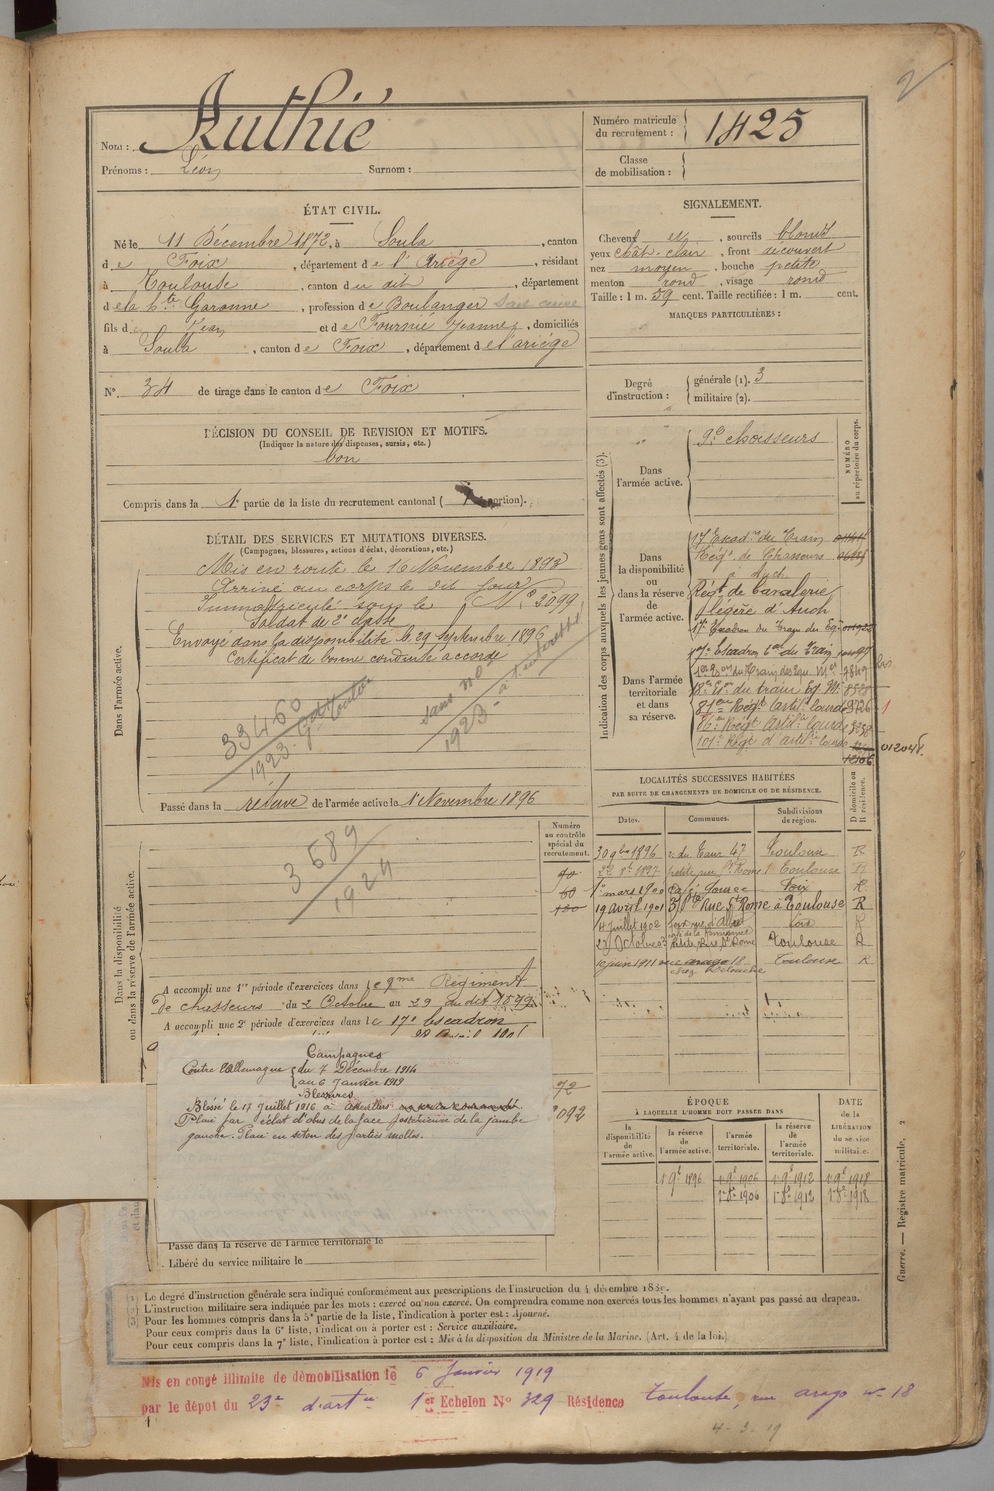 2
Nom : Authié
Prénoms : Léon Surnom :
Numéro matricule du recrutement : 1425
Classe de mobilisation :
ÉTAT CIVIL.
Né le 11 Décembre 1872, à Soula, canton
de Foix, département de l'Ariège, résidant
à Toulouse, canton du dit, département
de la Hte Garonne, profession de Boulanger
fils de Jean et de Fournié Jeanne, domiciliés
à Soula, canton de Foix, département de l'ariège
N° 34 de tirage dans le canton de Foix
DÉCISION DU CONSEIL DE REVISION ET MOTIFS.
(Indiquer la nature des dispenses, sursis, etc.)
bon
Compris dans la 1e partie de la liste du recrutement cantonal ( portion).
SIGNALEMENT.
Cheveux et, sourcils blonds
yeux chât. clair, front découvert
nez moyen, bouche petite
menton rond, visage rond
Taille : 1 m. 59 cent. Taille rectifiée : 1 m. cent.
MARQUES PARTICULIÈRES :
Degré d'instruction : générale (1). 3
militaire (2).
DÉTAIL DES SERVICES ET MUTATIONS DIVERSES.
(Campagnes, blessures, actions d'éclat, décorations, etc.)
Dans l'armée active.
Mis en route le 16 Novembre 1893
Arrivé au corps le dit jour
Immatriculé sous le No 3099
Soldat de 2e classe
Envoyé dans la disponibilité le 29 Septembre 1896
Certificat de bonne conduite accordé
33460
1923
sans no
1923
à l'intéressé
Passé dans la réserve de l'armée active le 1 Novembre 1896
Indication des corps auxquels les jeunes gens sont affectés (3).
NUMÉRO au répertoire du corps.
Dans l'armée active.
9e chasseurs
Dans la disponibilité ou dans la réserve de l'armée active.
17 Escadon du Train
Régt de Chasseurs
à Auch
Régt de Cavalerie
légère d'Auch
17e Escadron du Train des Eq.
Dans l'armée territoriale et dans sa réserve.
17e Escadron Tal du Train
18e Eson du train Eq. M. 8525
81eme Régt Artile lourde 9726
Régt Artile lourde
101e Régt d'Artile lourde
012048.
LOCALITÉS SUCCESSIVES HABITÉES
PAR SUITE DE CHANGEMENTS DE DOMICILE OU DE RÉSIDENCE.
D domicile ou R résidence.
Dates. Communes. Subdivisions de région.
30 9bre 1896 r. du Taur 47 Toulouse R
petite rue St Rome Toulouse R
1er mars 1900 Foix R
19 Avril 1901 Rue St Rome à Toulouse R
4 juillet 1902 Foix R
23 Octobre 03 Petite Rue St Rome Toulouse R
10 juin 1911 rue arago 18 Toulouse R
Numéro au contrôle spécial du recrutement.
Dans la disponibilité ou dans la réserve de l'armée active.
3689
1924
A accompli une 1re période d'exercices dans le 9me Régiment
de chasseurs du 2 Octobre au 29 du dit
A accompli une 2e période d'exercices dans le 17e Escadron
Campagnes
Contre l'Allemagne du 7 Décembre 1914
au 6 Janvier 1919
Blessures
Blessé le 17 Juillet 1916 à
Plaie par éclat d'obus de la face postérieure de la jambe
gauche. Plaie en séton des parties molles.
72
092
Passé dans la réserve de l'armée territoriale le
Libéré du service militaire le
ÉPOQUE
À LAQUELLE L'HOMME DOIT PASSER DANS
DATE de la LIBÉRATION du service militaire.
la disponibilité de l'armée active. la réserve de l'armée active. l'armée territoriale. la réserve de l'armée territoriale.
1 9e 1896 1 9e 1906 1 9e 1912 1 9e 1918
1906 1912 1918
Guerre. — Registre matricule, 2
(1) Le degré d'instruction générale sera indiqué conformément aux prescriptions de l'instruction du 4 décembre 1889.
(2) L'instruction militaire sera indiquée par les mots : exercé ou non exercé. On comprendra comme non exercés tous les hommes n'ayant pas passé au drapeau.
(3) Pour les hommes compris dans la 5e partie de la liste, l'indication à porter est : Ajourné.
Pour ceux compris dans la 6e liste, l'indication à porter est : Service auxiliaire.
Pour ceux compris dans la 7e liste, l'indication à porter est : Mis à la disposition du Ministre de la Marine. (Art. 4 de la loi.)
Mis en congé illimité de démobilisation le 6 Janvier 1919
par le dépôt du 23e d'artie 1er Echelon N° 329 Résidence Toulouse, rue arago no 18
4-3-19